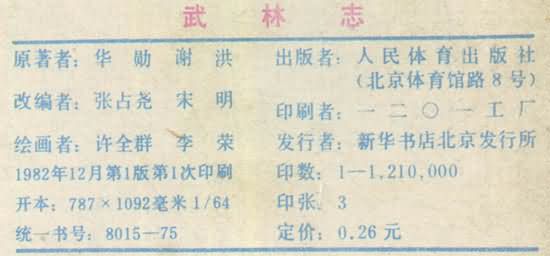 武林志
原著者：华勋 谢洪
改编者：张占尧 宋明
绘画者：许全群 李荣
1982年12月第1版第1次印刷
开本：787×1092毫米1/64
统一书号：8015—75
出版者：人民体育出版社
（北京体育馆路8号）
印刷者：一二〇一工厂
发行者：新华书店北京发行所
印数：1—1,210,000
印张：3
定价：0.26元